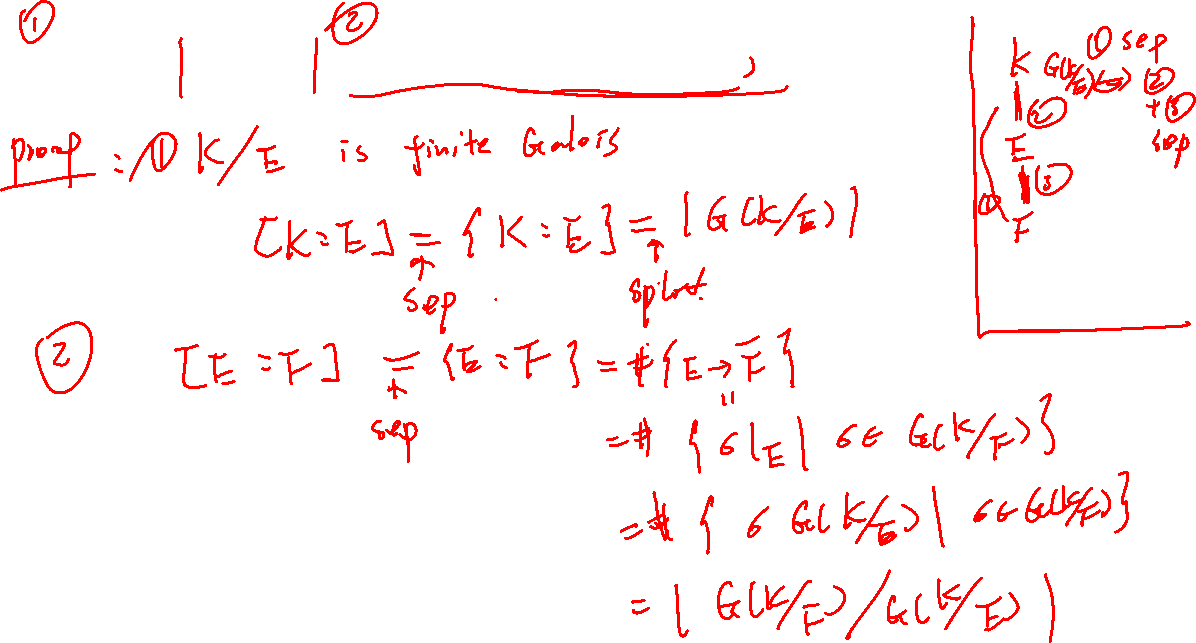 ① ②
proof : ① K/E is finite Galois
[K:E] = {K:E} = |G(K/E)|
↑ ↑
sep split.
② [E:F] = {E:F} = #{E→F̄}
↑ "
sep = #{σ|_E | σ∈G(K/F)}
= #{σ G(K/E) | σ∈G(K/F)}
= |G(K/F)/G(K/E)|
① sep
K G(K/E) ⟺ ②
② + ③
E sep
① ③
F